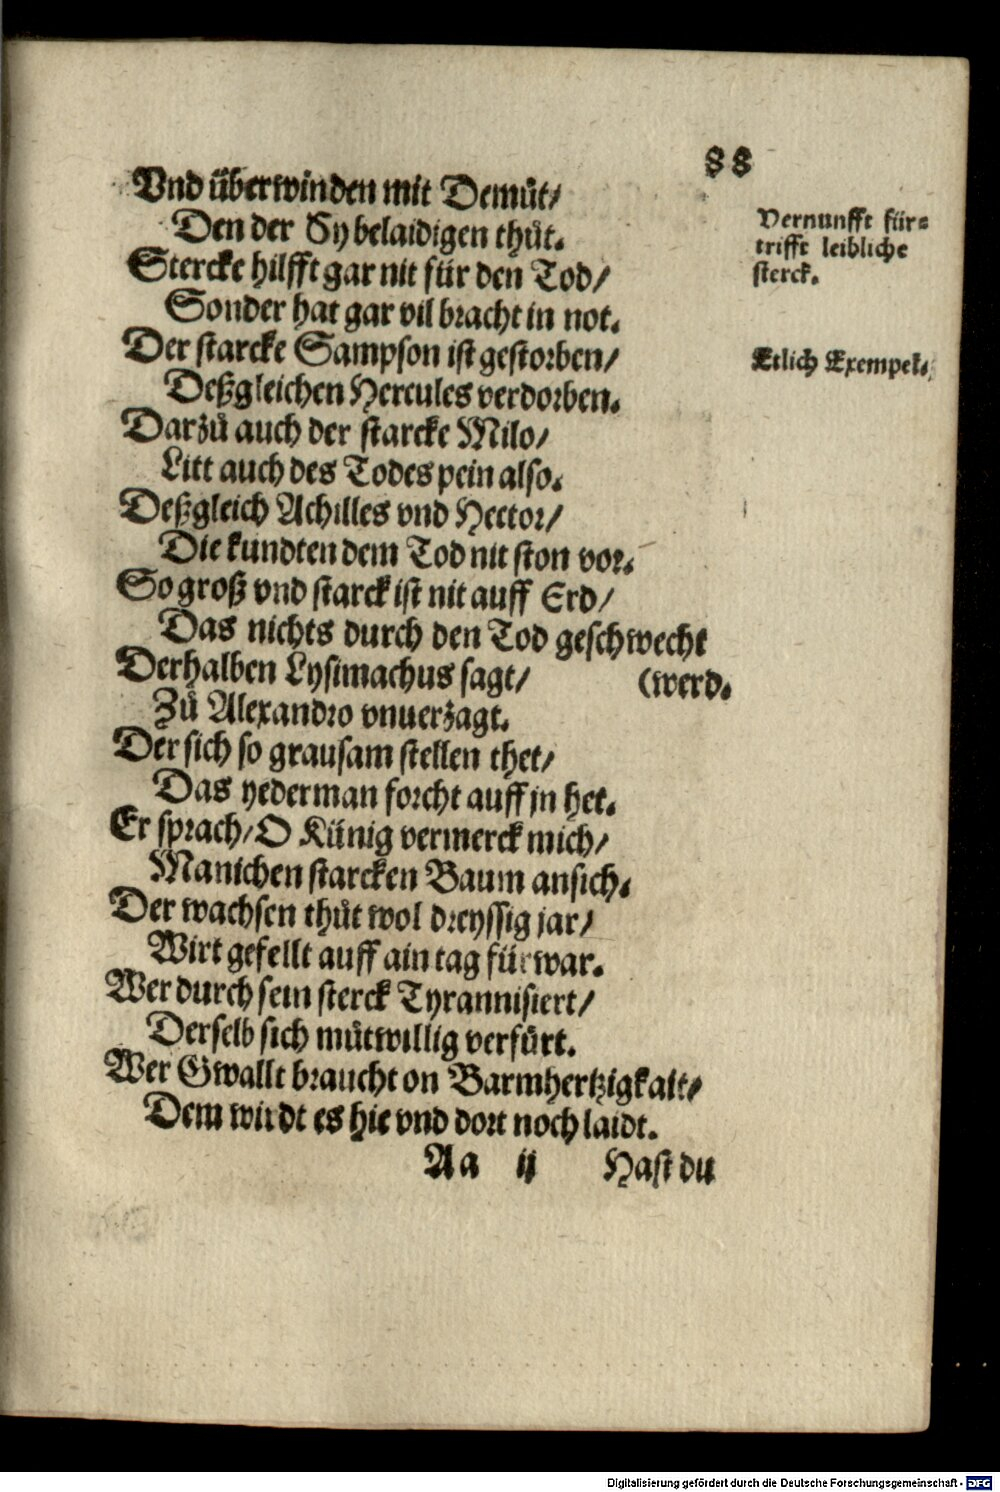 88
Vnd überwinden mit Demuͤt/
Den der Sy belaidigen thuͤt.
Stercke hilfft gar nit für den Tod/
Sonder hat gar vil bracht in not.
Der starcke Sampson ist gestorben/
Deßgleichen Hercules verdorben.
Darzuͦ auch der starcke Milo/
Litt auch des Todes pein also.
Deßgleich Achilles vnd Hector/
Die kundten dem Tod nit ston vor.
So groß vnd starck ist nit auff Erd/
Das nichts durch den Tod geschwecht
Derhalben Lysimachus sagt/ (werd.
Zuͦ Alexandro vnuerzagt.
Der sich so grausam stellen thet/
Das yederman forcht auff jn het.
Er sprach/ O Künig vermerck mich/
Manichen starcken Baum ansich.
Der wachsen thuͦt wol dreyssig jar/
Wirt gefellt auff ain tag fürwar.
Wer durch sein sterck Tyrannisiert/
Derselb sich muͦtwillig verfuͤrt.
Wer Gwallt braucht on Barmhertzigkait/
Dem wirdt es hie vnd dort noch laidt.
Aa ij Hast du
Vernunfft für=
trifft leibliche
sterck.
Etlich Exempel.
Digitalisierung gefördert durch die Deutsche Forschungsgemeinschaft - DFG